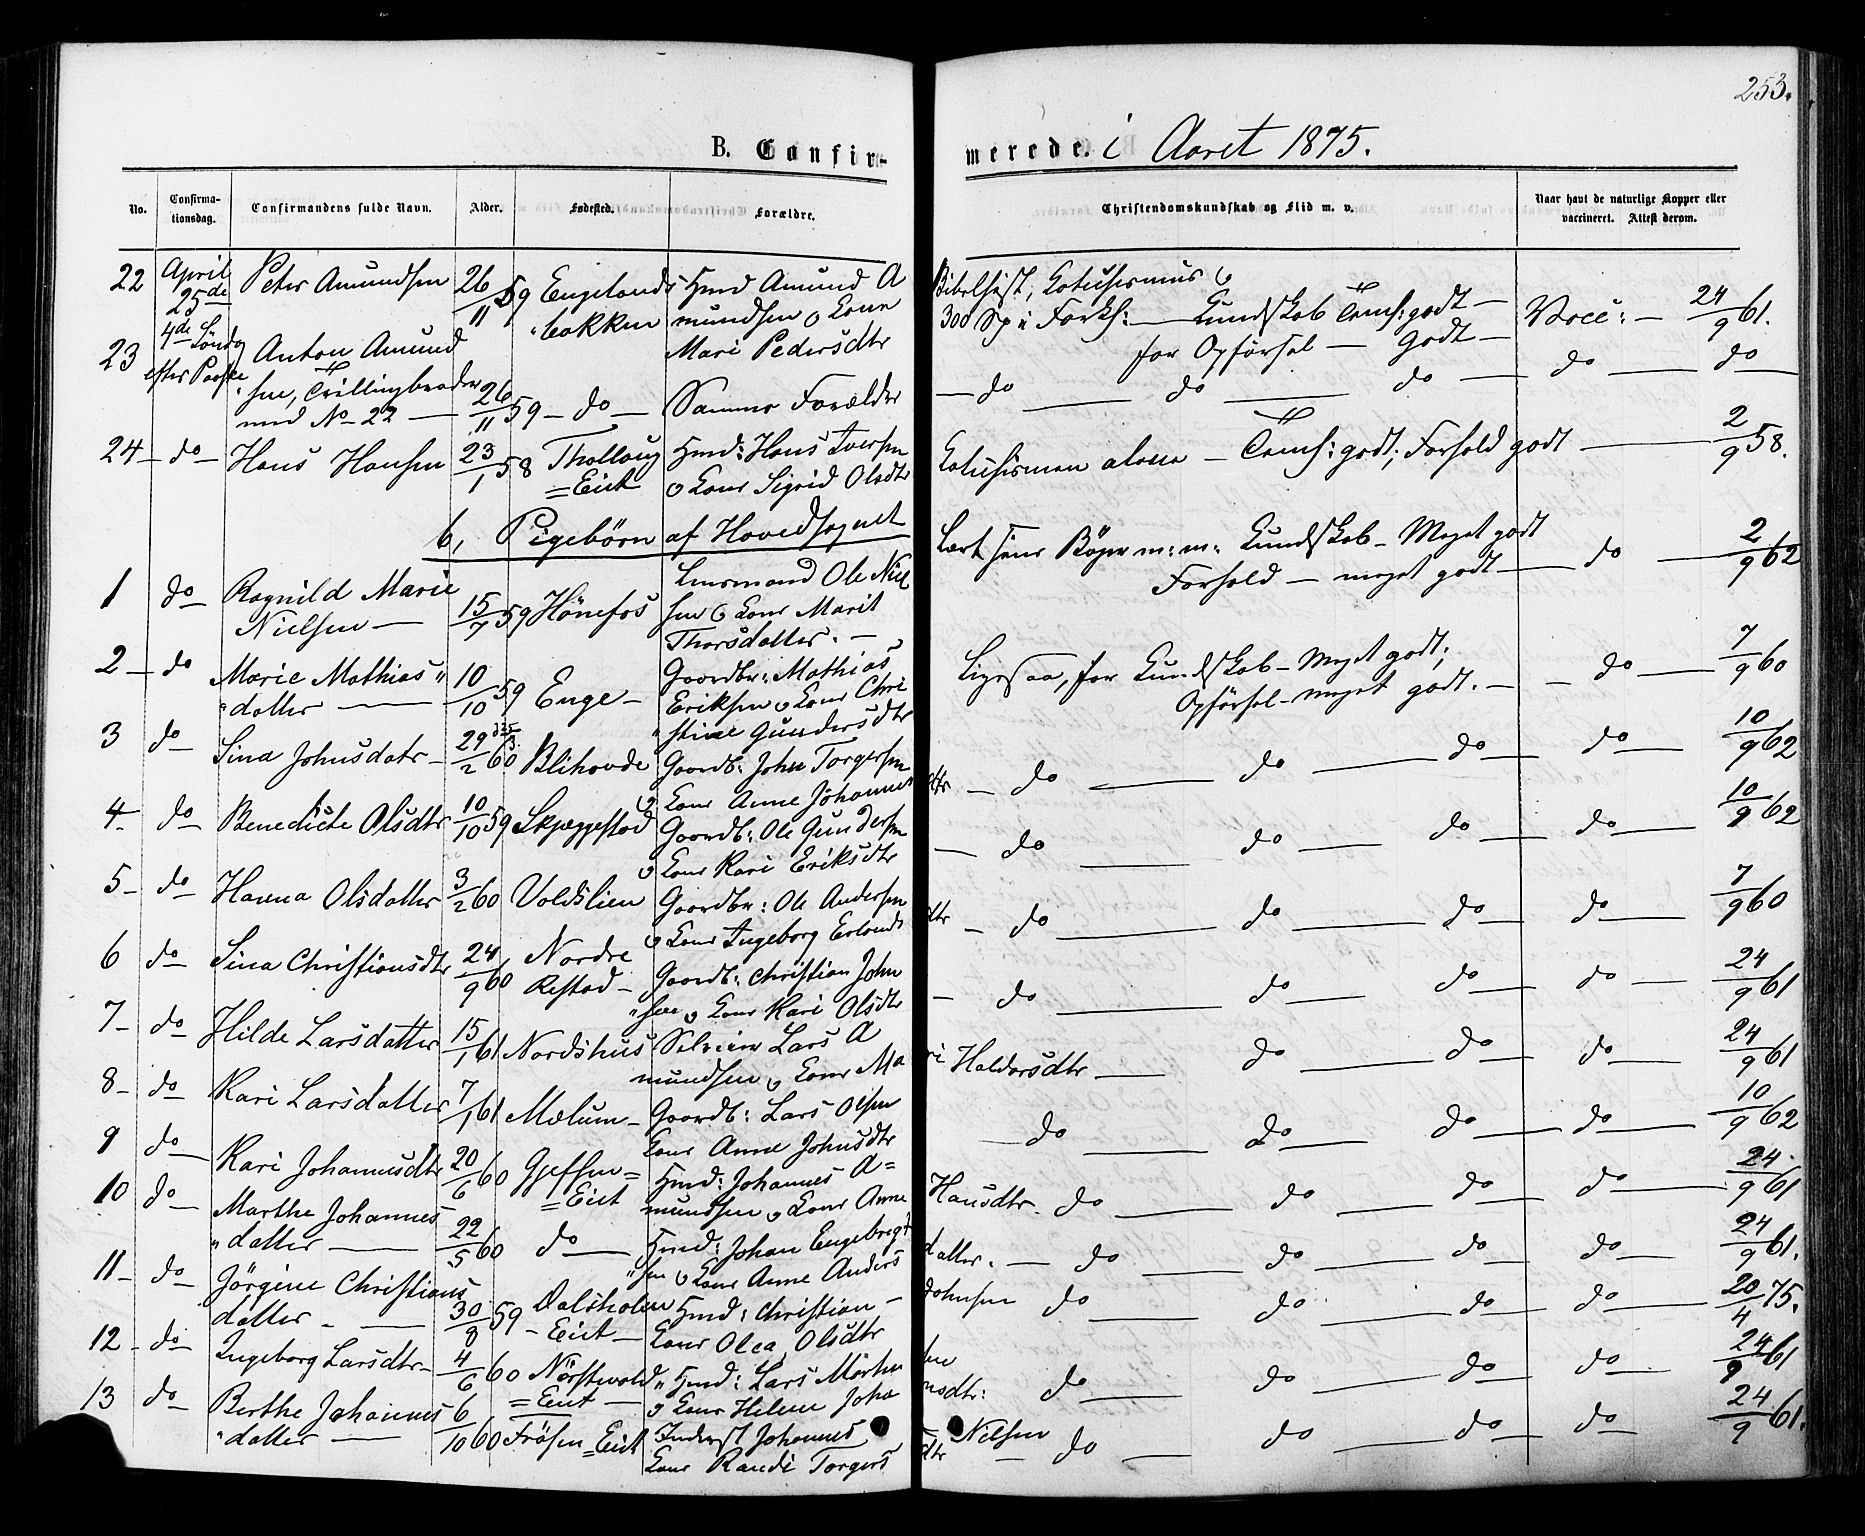 253.
B. Confirmerede. i Aaret 1875.
No.
Confirmationsdag.
Confirmandens fulde Navn.
Alder.
Fødested.
Forældre.
Christendomskundskab og Flid m. v.
Naar havt de naturlige Kopper eller
vaccineret. Attest derom.
22 April 25de Peter Amundsen 26/11 59 Engelands
bakken
Hmd Amund A
mundsen o Kone
Mari Pedersdtr
300 Sp i Forkl: — Kundskab Temf: godt —
for Opførsel — Godt —
Vacc: — 24/9 61.
4de Søndag
efter Paaske
23 Anton Amund
sen, Trillingbroder
med No 22 — 26/11 59 — do — Samme Forældre
— do — do — do — do — do —
24 — do — Hans Hansen 23/1 58 Thollaug
=Eiet
Hmd: Hans Iversen
o Kone Sigrid Olsdtr
alene — Temf: godt; Forhold godt — 2/9 58.
b, Pigebörn af Hovedsognet
1 do — Ragnild Marie
Nielsen — 15/7 59 Hönefos
Ole Niel
sen o Kone Marit
Thorsdatter. —
Læst sine Bøger m: m: Kundskab — Meget godt
Forhold — meget godt — do — 2/9 62
2 — do Marie Mathias"
"datter — 10/10 59 Enge —
Gaardbr: Mathias
Eriksen o Kone Chri
"stine Gundersdtr
Ligesaa, for Kundskab — Meget godt;
Opförsel — meget godt. — do — 7/9 60
3 do Sina Johnsdatr — 29/2 60 Blihovde
Gaardb: John Torgersen
o Kone Anne Johannes
dtr — do — do — do — do — 10/9 62
4 — do — Benedicte Olsdtr 10/10 59 Skjæggestad
Gaardb: Ole Gundersen
o Kone Kari Eriksdtr
— do — do — do — do — 10/9 62
5 — do — Hanna Olsdatter 3/2 60 Voldslien
Gaardbr: Ole Andersen
o Kone Ingeborg Erlands
dtr — do — do — do — do — 7/9 60
6 do — Sina Christiansdtr 24/9 60 Nordre
Restad —
Gaardb: Christian John
"sen o Kone Kari Olsdtr
— do — do — do — do — 24/9 61
7 — do — Hilde Larsdatter 15/1 61 Nordshus
Selveier Lars A
mundsen o Kone Ma
ri Haldorsdtr — do — do — do — 24/9 61
8 — do — Kari Larsdatter 7/1 61 Mælum —
Gaardb: Lars Olsen
Kone Anne Johnsdtr
— do — do — do — do — 10/9 62
9 do — Kari Johannesdtr 20/6 60 Gjessen=
=Eiet
Hmd: Johannes A=
mundsen o Kone Anne
Hansdtr. do — do — do — do — 24/9 61
10 do — Marthe Johannes
"datter — 22/5 60 do —
Hmd: Johan Engebregt
"sen o Kone Anne Anders
datter. — do — do — do — do — 24/9 61.
11 — do — Jörgine Christians
datter — 30/8 59 Dalsholen
— Eiet —
Hmd: Christian —
Kone Olea Olsdtr
Johnsen do — do — do — do — 20/4 75.
12 — do — Ingeborg Larsdtr — 4/6 60
=Eiet —
" Hmd: Lars Morten
o Kone Helene Joha
sen
nsdtr: do — do — do — do — 24/9 61
13 do — Berthe Johannes
"datter — 6/10 60 Frøsen=Eiet
Inderst Johannes
Kone Randi Torgers
Nilsen
dtr — do — do — do — do — 24/9 61.